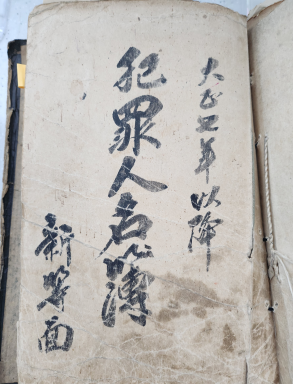 大正年以降
犯罪人名簿
新等面